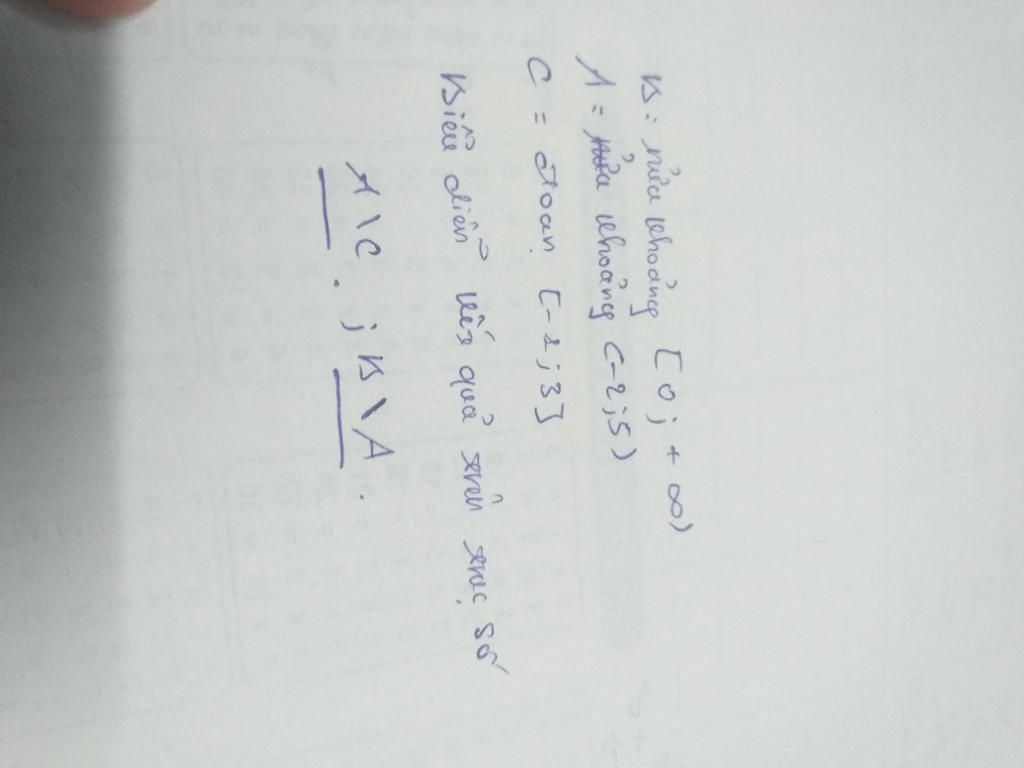 B = nửa khoảng [0; +∞)
A = nửa khoảng (-2; 5)
C = đoạn [-1; 3]
Biểu diễn kết quả trên trục số
A \ C . ; B \ A .